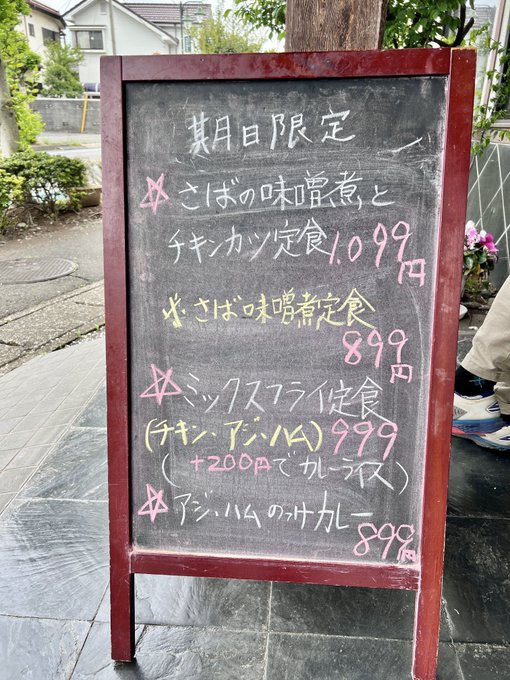 期日限定
☆さばの味噌煮と
チキンカツ定食 1.099円
*さば味噌煮定食
899円
☆ミックスフライ定食
(チキン、アジ、ハム) 999
(+200円でカレーライス)
☆アジ、ハムのっけカレー
899円